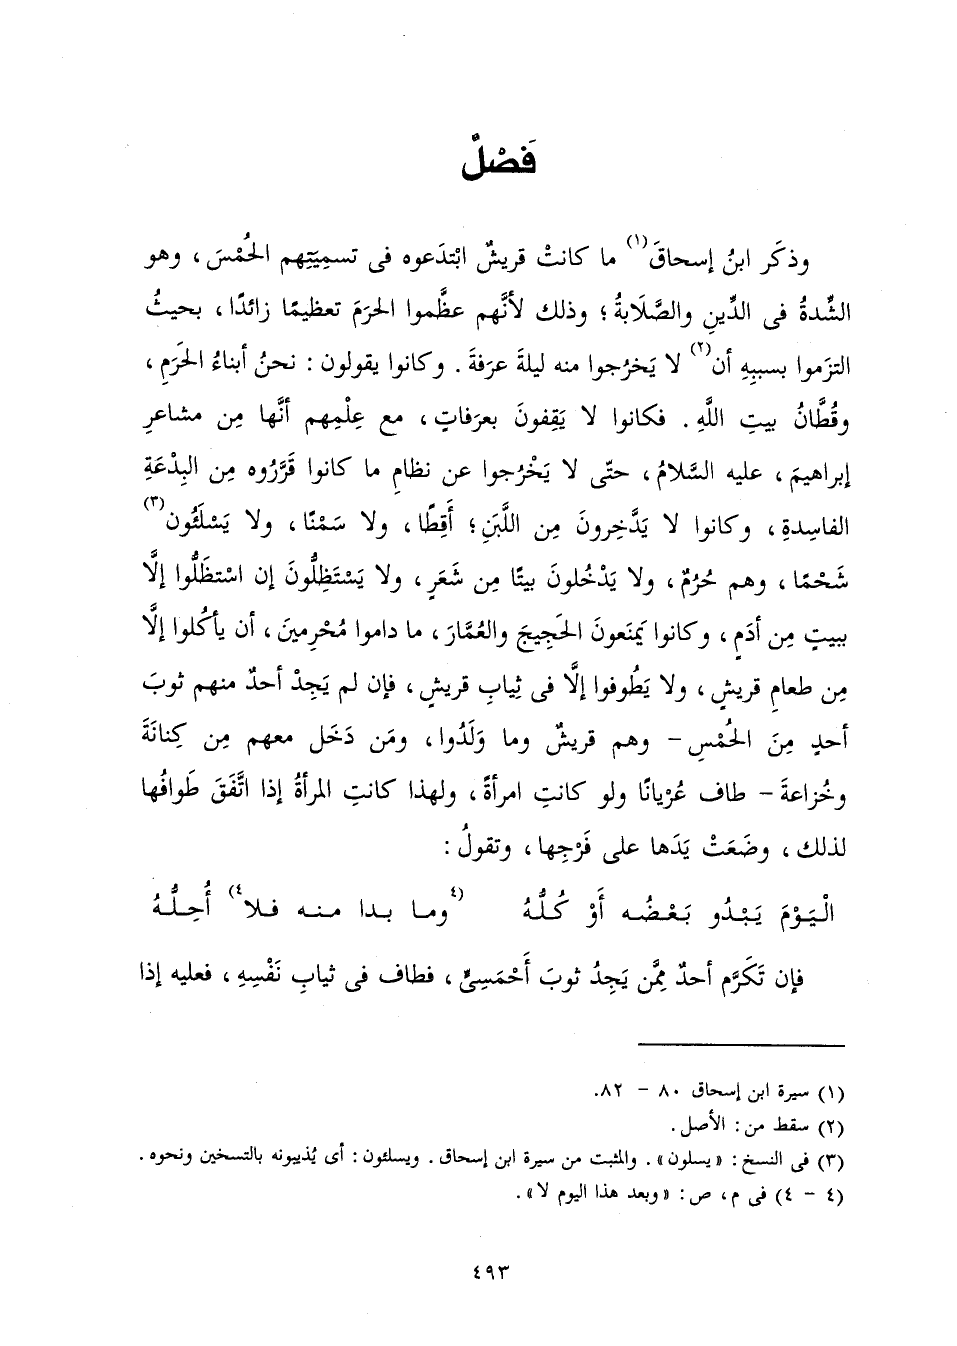 فَصْلٌ
وذكَر ابنُ إسحاقَ(١) ما كانتْ قريشٌ ابْتدَعوه فى تسمِيَتِهم الحُمْسَ ، وهو
الشِّدةُ فى الدِّينِ والصَّلابةُ ؛ وذلك لأنَّهم عظَّموا الحرَمَ تعظيمًا زائدًا ، بحيثُ
التزَموا بسببِهِ أن(٢) لا يَخرُجوا منه ليلةَ عرَفةَ . وكانوا يقولون : نحنُ أبناءُ الحَرَمِ ،
وقُطَّانُ بيتِ اللَّهِ . فكانوا لا يَقِفونَ بعرَفاتٍ ، مع عِلْمِهم أنَّها مِن مشاعرِ
إبراهيمَ ، عليه السَّلامُ ، حتّى لا يَخْرُجوا عن نظامِ ما كانوا قَرَّرُوه مِن البِدْعَةِ
الفاسِدةِ ، وكانوا لا يَدَّخِرونَ مِن اللَّبَنِ ؛ أَقِطًا ، ولا سَمْنًا ، ولا يَسْلَئُون(٣)
شَحْمًا ، وهم حُرُمٌ ، ولا يَدْخُلونَ بيتًا مِن شَعَرٍ ، ولا يَسْتَظِلُّونَ إن اسْتظَلُّوا إلَّا
ببيتٍ مِن أدَمٍ ، وكانوا يَمنَعونَ الحَجِيجَ والعُمَّارَ ، ما داموا مُحْرِمينَ ، أن يأكُلوا إلَّا
مِن طعامِ قريشٍ ، ولا يَطُوفوا إلَّا فى ثِيابِ قريشٍ ، فإن لم يَجِدْ أحدٌ منهم ثوبَ
أحدٍ مِنَ الحُمْسِ – وهم قريشٌ وما وَلَدُوا ، ومَن دَخَل معهم مِن كِنانَةَ
وخُزاعةَ – طاف عُرْيانًا ولو كانتِ امرأةً ، ولهذا كانتِ المرأةُ إذا اتَّفَقَ طَوافُها
لذلك ، وضَعَتْ يَدَها على فَرْجِها ، وتقولُ :
الْيَوْمَ يَبْدُو بَعْضُه أَوْ كُلُّهُ (٤وما بدا منه فلا٤) أُحِلُّهُ
فإن تَكَرَّم أحدٌ مِمَّن يَجِدُ ثوبَ أَحْمَسِىٍّ ، فطاف فى ثيابِ نَفْسِهِ ، فعليه إذا
(١) سيرة ابن إسحاق ٨٠ – ٨٢.
(٢) سقط من : الأصل .
(٣) فى النسخ : « يسلون » . والمثبت من سيرة ابن إسحاق . ويسلئون : أى يُذيبونه بالتسخين ونحوه .
(٤ – ٤) فى م ، ص : « وبعد هذا اليوم لا » .
٤٩٣